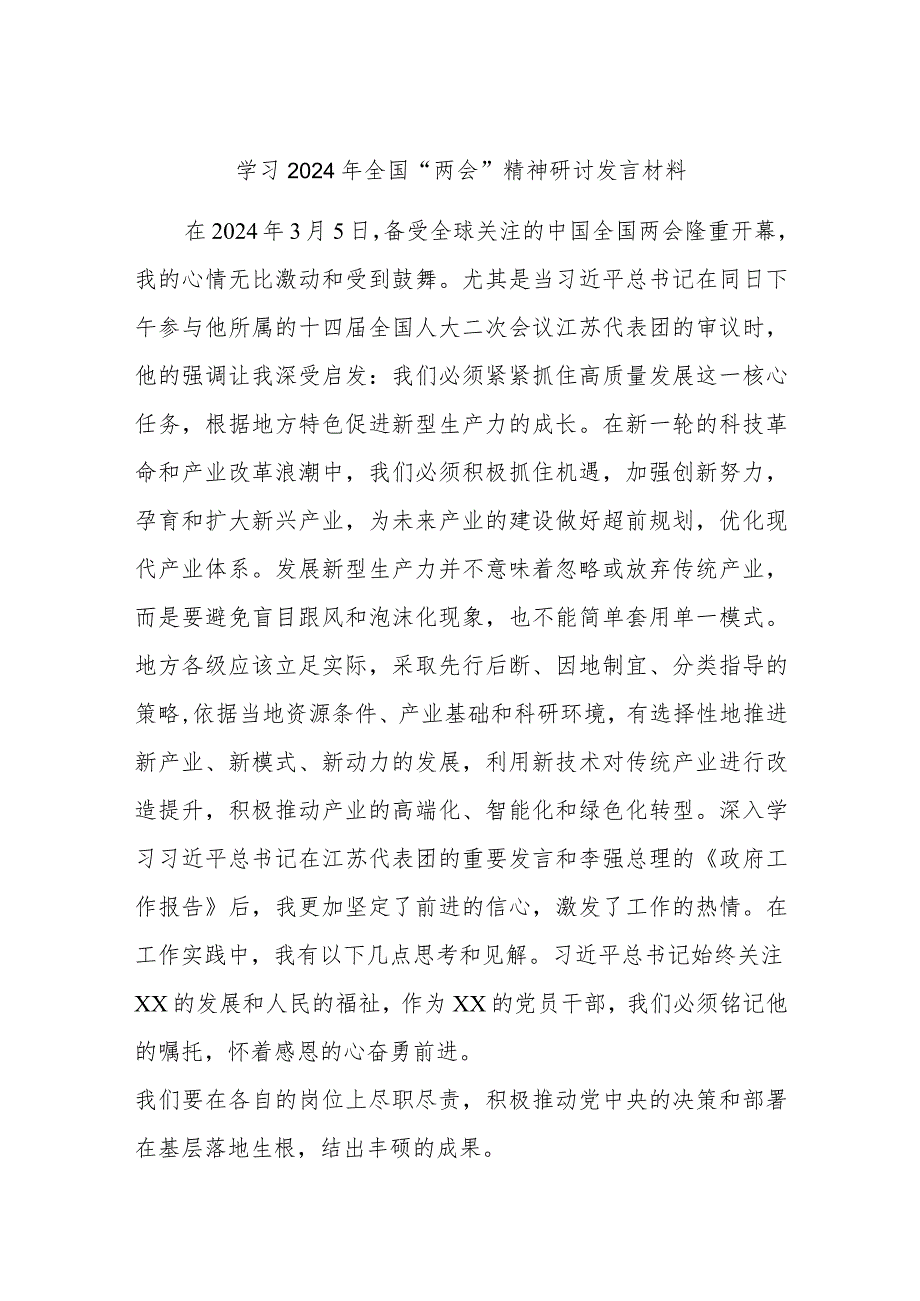 学习 2024 年全国“两会”精神研讨发言材料
在 2024 年 3 月 5 日,备受全球关注的中国全国两会隆重开幕，
我的心情无比激动和受到鼓舞。尤其是当习近平总书记在同日下
午参与他所属的十四届全国人大二次会议江苏代表团的审议时，
他的强调让我深受启发：我们必须紧紧抓住高质量发展这一核心
任务，根据地方特色促进新型生产力的成长。在新一轮的科技革
命和产业改革浪潮中，我们必须积极抓住机遇，加强创新努力，
孕育和扩大新兴产业，为未来产业的建设做好超前规划，优化现
代产业体系。发展新型生产力并不意味着忽略或放弃传统产业，
而是要避免盲目跟风和泡沫化现象，也不能简单套用单一模式。
地方各级应该立足实际，采取先行后断、因地制宜、分类指导的
策略,依据当地资源条件、产业基础和科研环境，有选择性地推进
新产业、新模式、新动力的发展，利用新技术对传统产业进行改
造提升，积极推动产业的高端化、智能化和绿色化转型。深入学
习习近平总书记在江苏代表团的重要发言和李强总理的《政府工
作报告》后，我更加坚定了前进的信心，激发了工作的热情。在
工作实践中，我有以下几点思考和见解。习近平总书记始终关注
XX 的发展和人民的福祉，作为 XX 的党员干部，我们必须铭记他
的嘱托，怀着感恩的心奋勇前进。
我们要在各自的岗位上尽职尽责，积极推动党中央的决策和部署
在基层落地生根，结出丰硕的成果。